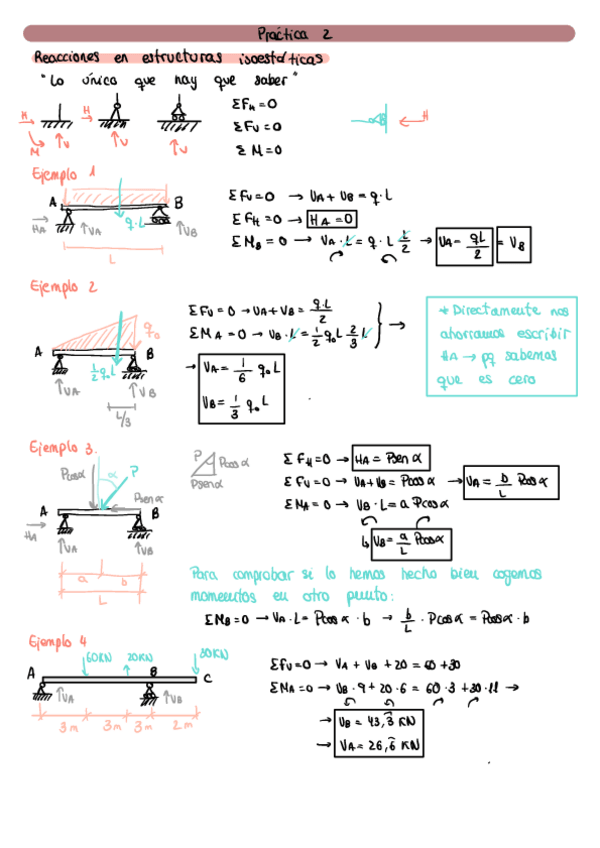 Práctica 2
Reacciones en estructuras isoestáticas
"Lo único que hay que saber"
H V M H V V
ΣF_H = 0
ΣF_V = 0
ΣM = 0
H
Ejemplo 1
A B
H_A V_A q·L V_B
L
ΣF_V = 0 → V_A + V_B = q·L
ΣF_H = 0 → H_A = 0
ΣM_B = 0 → V_A · L = q · L L/2 → V_A = qL/2 = V_B
Ejemplo 2
q_0
A B
V_A 1/2 q_0 L V_B
L/3
ΣF_V = 0 → V_A + V_B = q·L/2
ΣM_A = 0 → V_B · L = 1/2 q_0 L 2/3 L →
→ V_A = 1/6 q_0 L
V_B = 1/3 q_0 L
* Directamente nos
ahorramos escribir
H_A → pq sabemos
que es cero
Ejemplo 3.
Pcosα α P
Psenα
A B
H_A V_A V_B
a b
L
P Pcosα
Psenα
ΣF_H = 0 → H_A = Psenα
ΣF_V = 0 → V_A + V_B = Pcosα → V_A = b/L Pcosα
ΣM_A = 0 → V_B · L = a Pcosα
↳ V_B = a/L Pcosα
Para comprobar si lo hemos hecho bien cogemos
momentos en otro punto:
ΣM_B = 0 → V_A · L = Pcosα · b → b/L · Pcosα = Pcosα · b
Ejemplo 4
60KN 20KN 30KN
A B C
V_A V_B
3m 3m 3m 2m
ΣF_V = 0 → V_A + V_B + 20 = 60 + 30
ΣM_A = 0 → V_B · 9 + 20 · 6 = 60 · 3 + 30 · 11 →
→ V_B = 43,3̂ KN
→ V_A = 26,6̂ KN